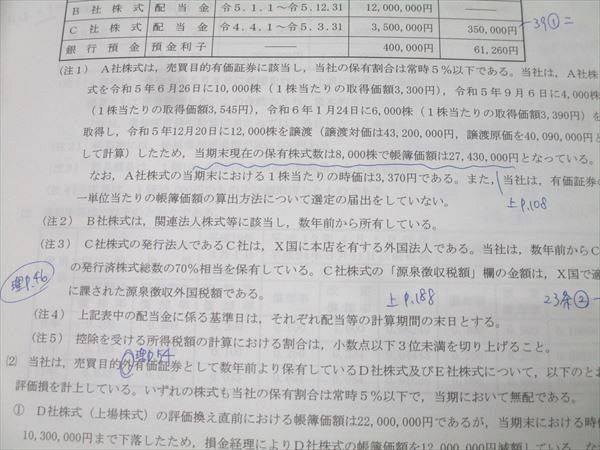 B 社 株 式 配 当 金 令5.1.1～令5.12.31 12,000,000円
C 社 株 式 配 当 金 令4.4.1～令5.3.31 3,500,000円 350,000円
銀 行 預 金 預 金 利 子 ―― 400,000円 61,260円
(注1) A社株式は，売買目的有価証券に該当し，当社の保有割合は常時5％以下である。当社は，A社株
式を令和5年6月26日に10,000株（1株当たりの取得価額3,300円），令和5年9月6日に4,000株
（1株当たりの取得価額3,545円），令和6年1月24日に6,000株（1株当たりの取得価額3,390円）を
取得し，令和5年12月20日に12,000株を譲渡（譲渡対価は43,200,000円，譲渡原価を40,090,000円と
して計算）したため，当期末現在の保有株式数は8,000株で帳簿価額は27,430,000円となっている。
なお，A社株式の当期末における1株当たりの時価は3,370円である。また，当社は，有価証券の
一単位当たりの帳簿価額の算出方法について選定の届出をしていない。
上P.108
(注2) B社株式は，関連法人株式等に該当し，数年前から所有している。
(注3) C社株式の発行法人であるC社は，X国に本店を有する外国法人である。当社は，数年前からC
の発行済株式総数の70％相当を保有している。C社株式の「源泉徴収税額」欄の金額は，X国で適
理P.46
に課された源泉徴収外国税額である。
上P.188 23条②
(注4) 上記表中の配当金に係る基準日は，それぞれ配当等の計算期間の末日とする。
(注5) 控除を受ける所得税額の計算における割合は，小数点以下3位未満を切り上げること。
理P.54
(2) 当社は，売買目的外有価証券として数年前より保有しているD社株式及びE社株式について，以下のとお
評価損を計上している。いずれの株式も当社の保有割合は常時5％以下で，当期において無配である。
① D社株式（上場株式）の評価換え直前における帳簿価額は22,000,000円であるが，当期末における時価
10,300,000円まで下落したため，損金経理によりD社株式の帳簿価額を12,000,000円減額している。な